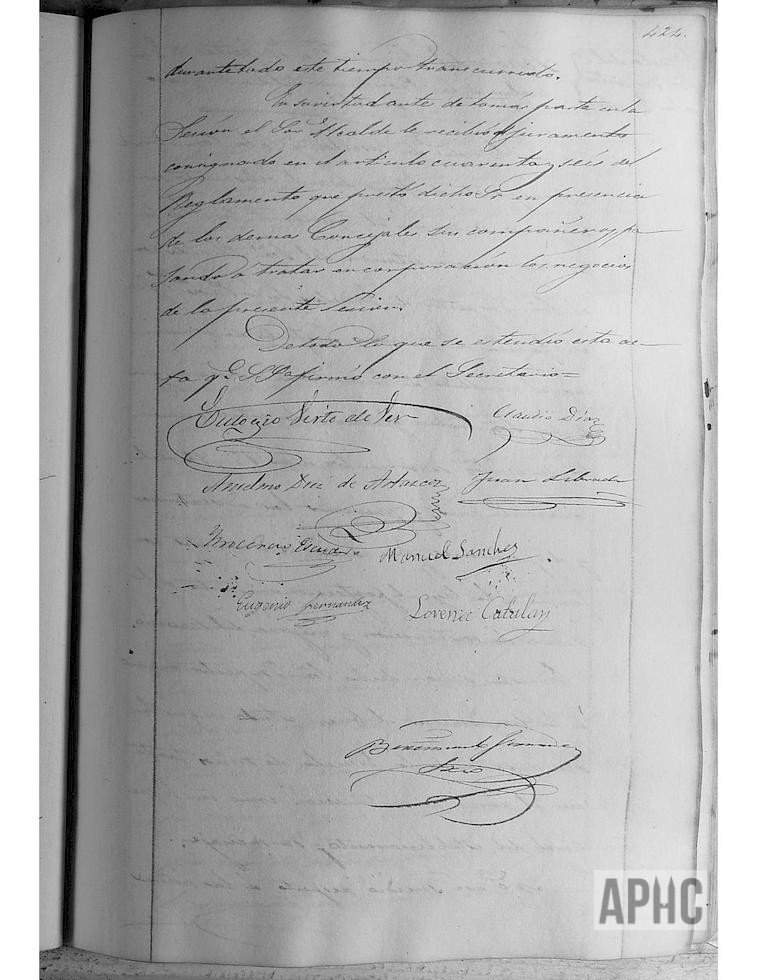 424.
durante todo este tiempo transcurrido.
En su virtud antes de tomar parte en la
Sesión el Sor Alcalde le recibió el juramento
consignado en el artículo cuarenta y seis del
Reglamento que prestó dicho Sr en presencia
de los demas Concejales sus compañeros, pa
sando a tratar en corporación los negocios
de la presente Sesion.
De todo lo que se estendió esta ac-
ta qe. S Sa firmó con el Secretario=
Eulogio Virto de Claudio Díaz
Anselmo Diez de Juan
Inocencio Escudero Manuel Sanchez
Eugenio Fernandez Lorenzo Catalan
Srio
APHC